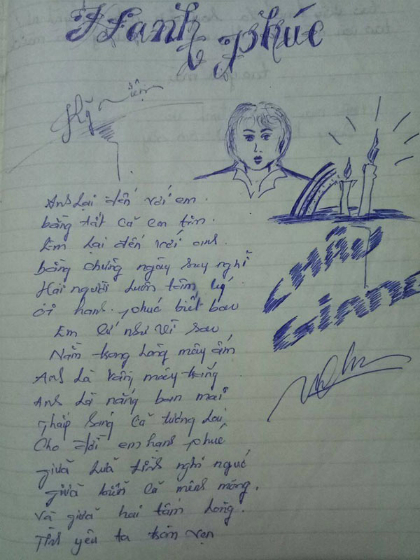 Hạnh phúc
Anh lại đến với em
bằng tất cả con tim
Em lại đến với anh
bằng những ngày suy nghĩ
Hai người luôn tâm lý
Ôi hạnh phúc biết bao
Em cứ như vì sao
Nằm trong lòng mây ấm
Anh là vầng mây trắng
Anh là nắng ban mai
Thắp sáng cả tương lai
Cho đời em hạnh phúc
giữa lửa tình nghi ngút
giữa biển cả mênh mông.
và giữa hai tấm lòng.
Tình yêu ta trọn vẹn
CHÂU
GIANG